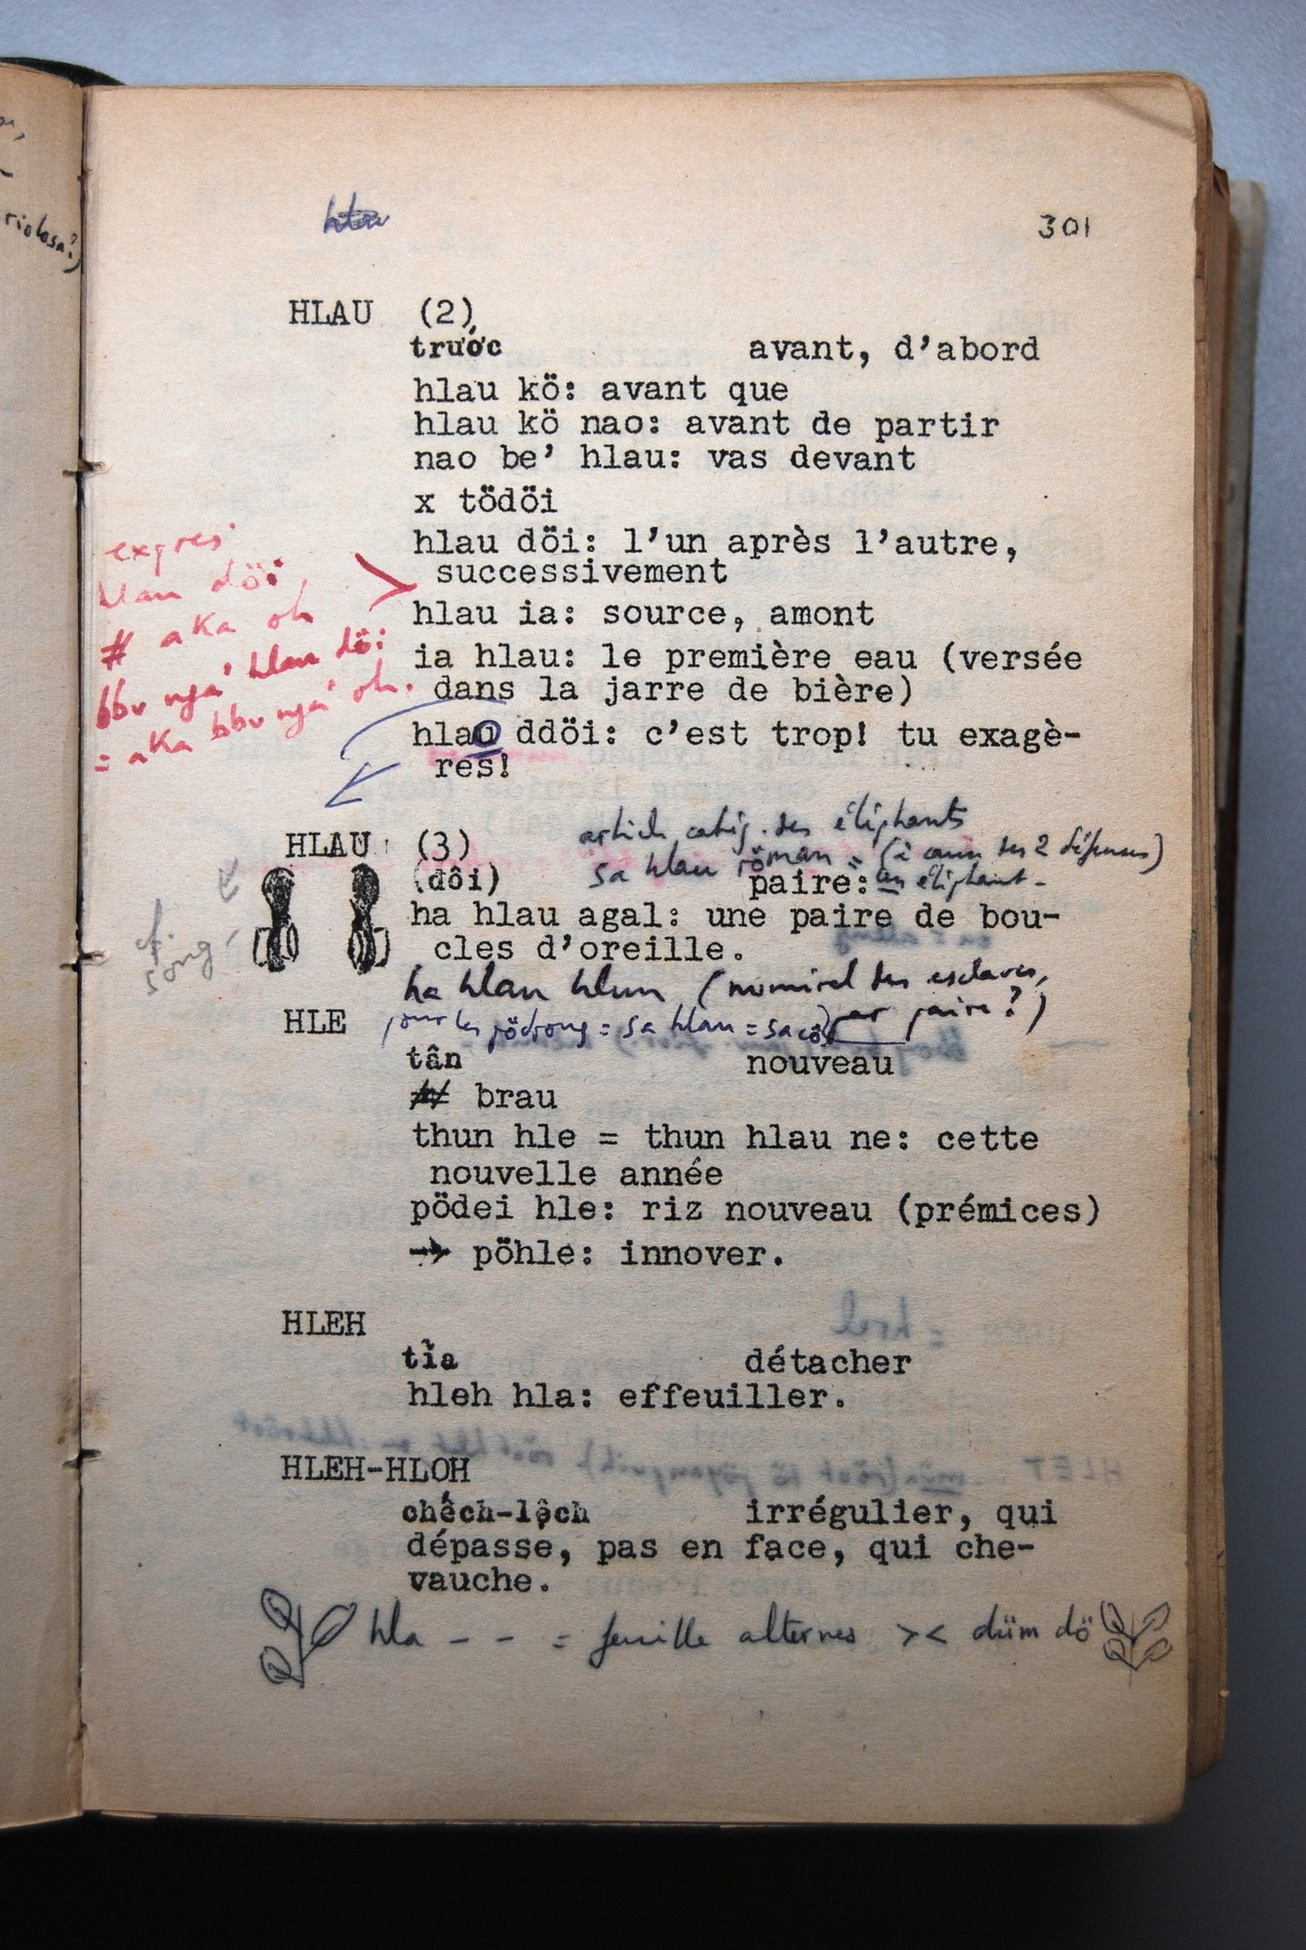 301
HLAU (2)
trước avant, d'abord
hlau kö: avant que
hlau kö nao: avant de partir
nao be' hlau: vas devant
x tödöi
hlau döi: l'un après l'autre,
successivement
hlau ia: source, amont
ia hlau: le première eau (versée
dans la jarre de bière)
hlao ddöi: c'est trop! tu exagè-
res!
expres
hlau döi
# aka oh
bbu ngă hlau döi
= aka bbu ngă oh.
HLAU (3)
article catég. des éléphants
sa hlau röman = (à cause des 2 défenses)
un éléphant.
(đôi) paire:
ha hlau agal: une paire de bou-
cles d'oreille.
cf.
song
ha hlau hlun (numéral des esclaves,
par paire?)
pour les pödrong = sa hlau = sa cô
HLE
tân nouveau
# brau
thun hle = thun hlau ne: cette
nouvelle année
pödei hle: riz nouveau (prémices)
→ pöhle: innover.
HLEH
tỉa détacher
hleh hla: effeuiller.
HLEH-HLOH
chếch-lệch irrégulier, qui
dépasse, pas en face, qui che-
vauche.
hla - - = feuille alternes >< düm dö